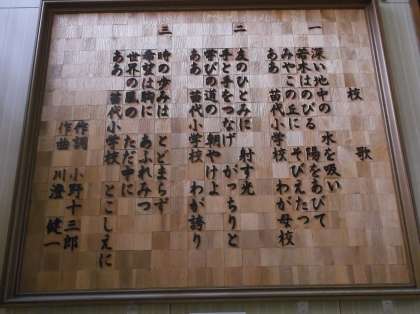 校歌
一
深い地中の 水を吸い
若木はのびる 陽をあびて
みやこの丘に そびえたつ
ああ 苗代小学校 わが母校
二
友のひとみに 射す光
手と手をつなげ がっちりと
学びの道の 朝やけよ
ああ 苗代小学校 わが誇り
三
時の歩みは とどまらず
希望は胸に あふれみつ
世界の風の ただ中に
ああ 苗代小学校 とこしえに
作詞 小野十三郎
作曲 川澄健一